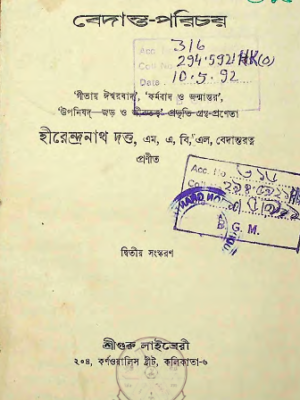 বেদান্ত-পরিচয়
Acc. No
316
Call No
294.592/HK(0)
Date
10.5.92
'গীতায় ঈশ্বরবাদ', 'কর্মবাদ ও জন্মান্তর',
'উপনিষদ্— জড় ও জীবতত্ত্ব' প্রভৃতি গ্রন্থ-প্রণেতা
হীরেন্দ্রনাথ দত্ত, এম, এ, বি, এল, বেদান্তরত্ন
প্রণীত
Acc. No
B. G. M.
দ্বিতীয় সংস্করণ
শ্রীগুরু লাইব্রেরী
২০৪, কর্ণওয়ালিস ষ্ট্রীট, কলিকাতা-৬